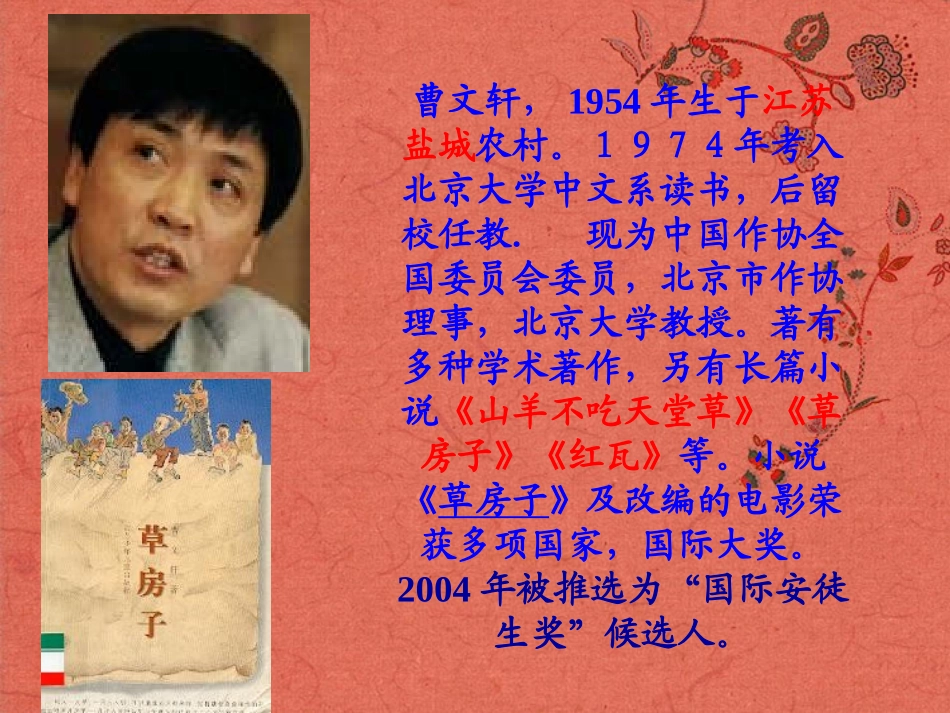 曹文轩， 1954 年生于江苏
盐城农村。１９７４年考入
北京大学中文系读书，后留
校任教．　现为中国作协全
国委员会委员，北京市作协
理事，北京大学教授。著有
多种学术著作，另有长篇小
说《山羊不吃天堂草》《草
房子》《红瓦》等。小说
《草房子》及改编的电影荣
获多项国家，国际大奖。
2004 年被推选为“国际安徒
生奖”候选人。
草房子
曹文轩 著